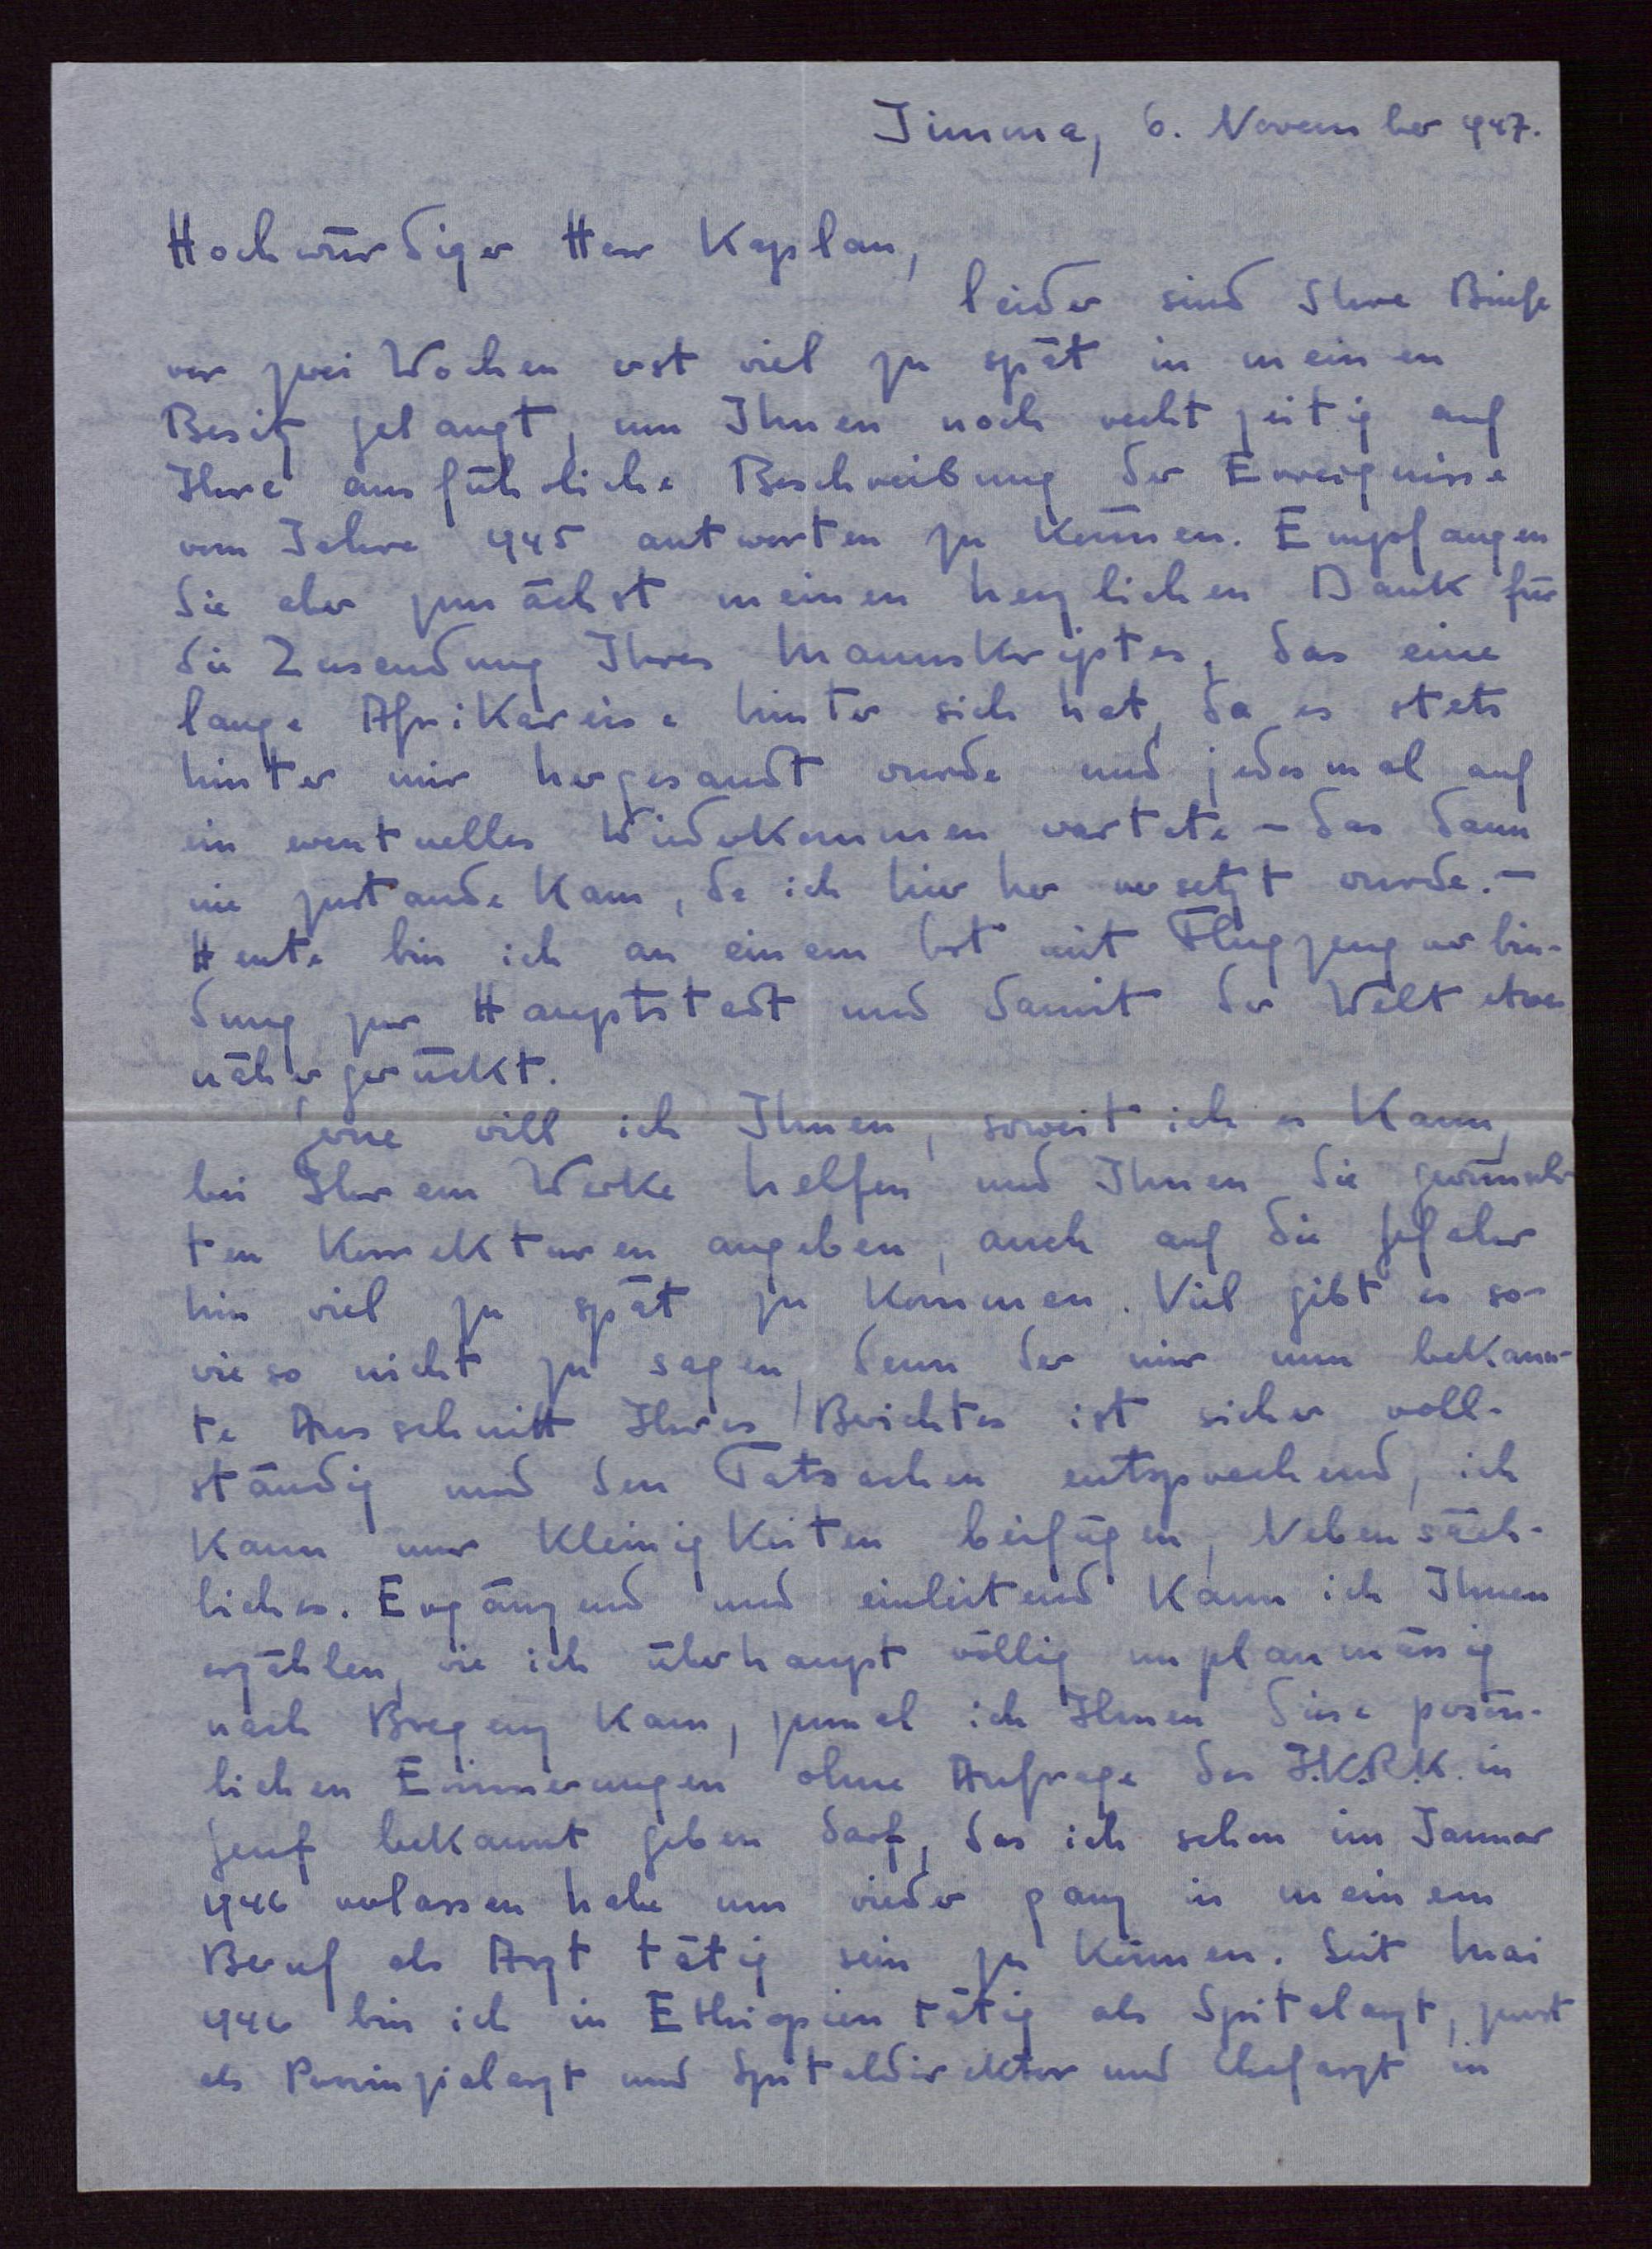 Jimma, 6. November 947.
Hochwürdiger Herr Kaplan,
leider sind Ihre Briefe
vor zwei Wochen erst viel zu spät in meinen
Besitz gelangt, um Ihnen noch rechtzeitig auf
Ihre ausführliche Beschreibung der Ereignisse
vom Jahre 945 antworten zu können. Empfangen
Sie aber zunächst meinen herzlichen Dank für
die Zusendung Ihres Manuskriptes, das eine
lange Afrikareise hinter sich hat, da es stets
hinter mir hergesandt wurde und jedesmal auf
ein eventuelles Wiederkommen wartete – das dann
nie zustande kam, da ich hier her versetzt wurde. –
Heute bin ich an einem Ort mit Flugzeugverbin-
dung zur Hauptstadt und damit der Welt etwas
näher gerückt.
Gerne will ich Ihnen, soweit ich es kann,
bei Ihrem Werke helfen und Ihnen die gewünsch-
ten Korrekturen angeben, auch auf die Gefahr
hin viel zu spät zu kommen. Viel gibt es so-
wieso nicht zu sagen, denn der mir nun bekann-
te Ausschnitt Ihres Berichtes ist sicher voll-
ständig und den Tatsachen entsprechend, ich
kann nur Kleinigkeiten beifügen, Nebensäch-
liches. Ergänzend und einleitend kann ich Ihnen
erzählen, wie ich überhaupt völlig unplanmässig
nach Bregenz kam, zumal ich Ihnen diese persön-
lichen Erinnerungen ohne Anfrage des I.K.R.K. in
Genf bekannt geben darf, das ich schon im Januar
946 verlassen habe um wieder ganz in meinem
Beruf als Arzt tätig sein zu können. Seit Mai
946 bin ich in Ethiopien tätig als Spitalarzt, zuerst
als Provinzialarzt und Spitaldirektor und Chefarzt in